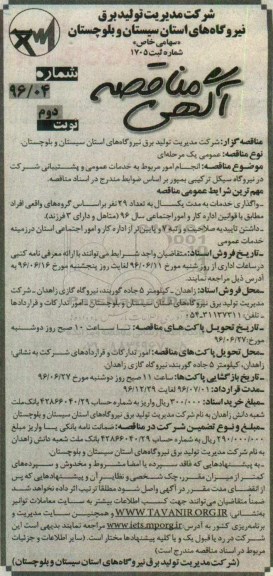 شرکت مدیریت تولید برق
نیروگاه‌های استان سیستان و بلوچستان
«سهامی خاص»
شماره ثبت ۱۷۰۵
آگهی مناقصه
شماره
۹۶/۰۴
نوبت دوم
مناقصه گزار: شرکت مدیریت تولید برق نیروگاه‌های استان سیستان و بلوچستان.
نوع مناقصه: عمومی یک مرحله‌ای
موضوع مناقصه: انجام امور مربوط به خدمات عمومی و پشتیبانی شرکت
در نیروگاه سیکل ترکیبی بمپور بر اساس ضوابط مندرج در اسناد مناقصه.
مهم‌ترین شرایط عمومی مناقصه
ـ واگذاری خدمات به مدت یکسال به تعداد ۲۹ نفر براساس گروه‌های واقعی افراد
مطابق با قوانین اداره کار و امور اجتماعی سال ۹۶ (متاهل و دارای ۲ فرزند).
ـ داشتن تاییدیه صلاحیت و رتبه ۷ و پایین‌تر از اداره کار و امور اجتماعی استان در زمینه
خدمات عمومی
ـ تاریخ فروش اسناد: متقاضیان واجد شرایط می‌توانند با ارائه معرفی نامه کتبی
در ساعات اداری از روز شنبه مورخ ۹۶/۰۶/۱۱ لغایت روز پنجشنبه مورخ ۹۶/۰۶/۱۶ به
آدرس ذیل مراجعه نمایند.
محل فروش اسناد: زاهدان ـ کیلومتر ۵ جاده گوربند، نیروگاه گازی زاهدان ـ شرکت
مدیریت تولید برق نیروگاه‌های استان سیستان و بلوچستان ـ امور تدارکات و قراردادها
ـ تلفن: ۰۵۴-۳۱۱۳۷۳۱۱
ـ تاریخ تحویل پاکت‌های مناقصه: تا ساعت ۱۰ صبح روز دوشنبه
مورخ ۹۶/۰۶/۲۷
ـ محل تحویل پاکت‌های مناقصه: امور تدارکات و قراردادهای شرکت به نشانی:
زاهدان، کیلومتر ۵ جاده گوربند، نیروگاه گازی زاهدان.
تاریخ بازگشایی پاکت‌ها: ساعت ۱۱ صبح روز دوشنبه مورخ ۹۶/۰۶/۲۷
مدت قرارداد: ۹۶/۰۷/۰۱ لغایت ۹۶/۱۲/۲۹
مبلغ خرید اسناد: ۳۰۰/۰۰۰ ریال واریز به شماره حساب ۴۲۸۶۶۰۴۰/۲۹ بانک ملت
شعبه دانش زاهدان به نام شرکت مدیریت تولید برق نیروگاه‌های استان سیستان و بلوچستان
مبلغ و نوع تضمین شرکت در مناقصه: ضمانت نامه بانکی یا واریز مبلغ
۲۹۰/۰۰۰/۰۰۰ ریال به شماره حساب ۴۲۸۶۶۰۴۰/۲۹ بانک ملت شعبه دانش زاهدان
به نام شرکت مدیریت تولید برق نیروگاه‌های استان سیستان و بلوچستان.
ـ به پیشنهادهایی که فاقد سپرده یا امضا مشروط و مخدوش و سپرده‌های
کمتر از میزان مقرر، چک شخصی و نظایر آن و پیشنهادهایی که پس
از انقضای مدت مقرر در آگهی واصل شود مطلقاً ترتیب اثر داده نخواهد شد
ضمناً متقاضیان می‌توانند جهت کسب اطلاعات بیشتر به سایت معاملات توانیر
به نشانی: WWW.TAVANIR.ORG.IR و همچنین سایت مدیریت و
برنامه‌ریزی کشور به آدرس www.iets.mporg.ir مراجعه نمایند بدیهی است این
شرکت در رد یا قبول یک و یا کلیه پیشنهادها مختار است. (سایر اطلاعات و جزئیات
مربوط در اسناد مناقصه مندرج است)
(شرکت مدیریت تولید برق نیروگاه‌های استان سیستان و بلوچستان)